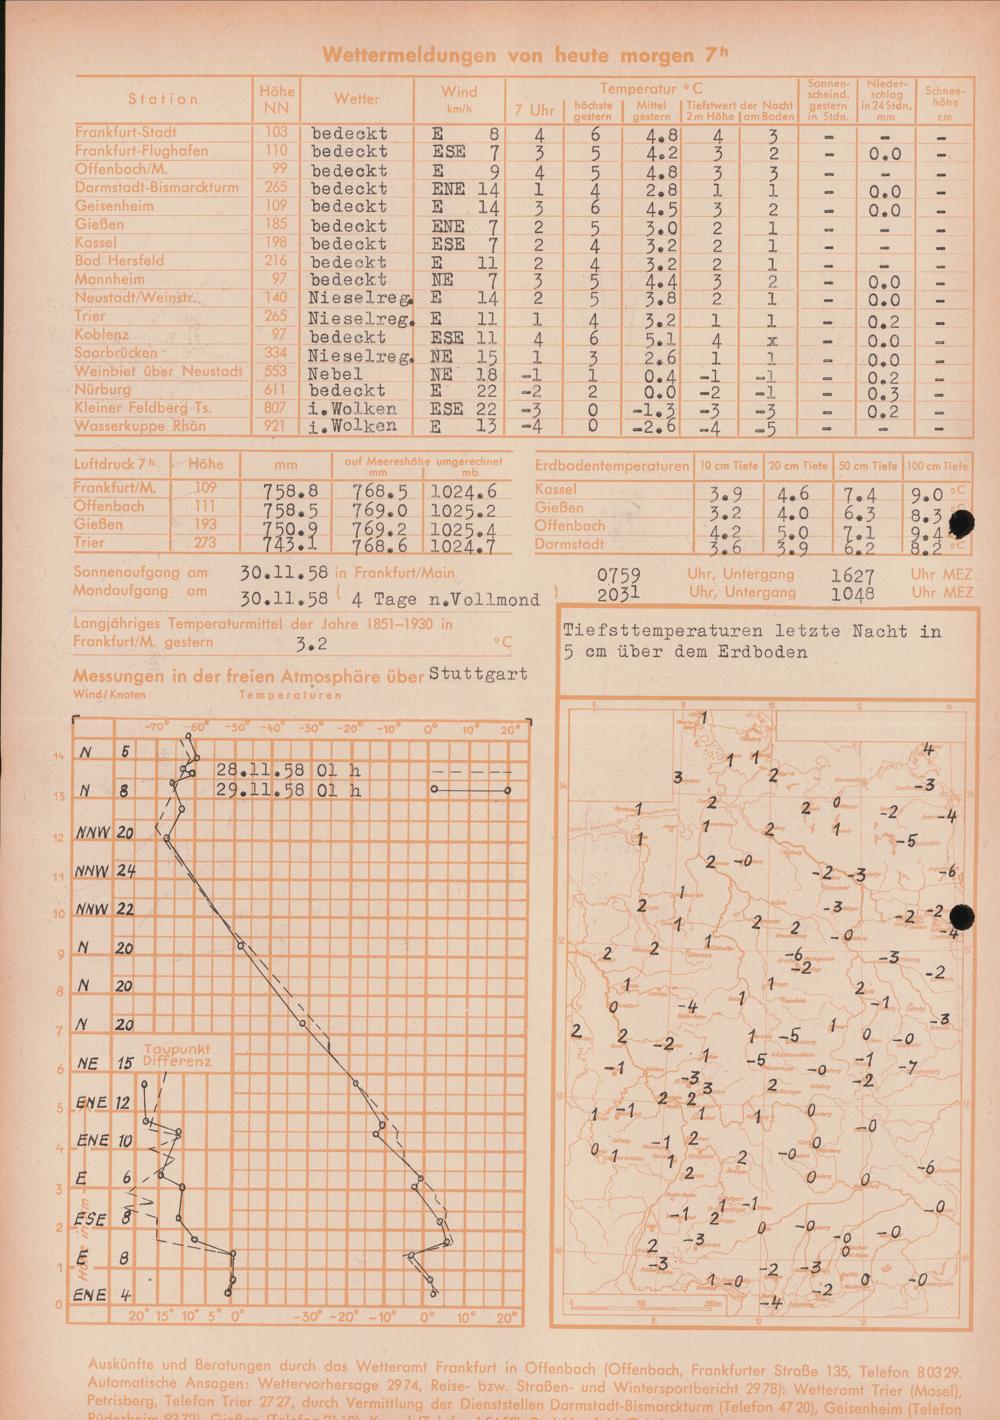 Wettermeldungen von heute morgen 7ʰ
Station Höhe NN Wetter Wind km/h Temperatur °C 7 Uhr höchste gestern Mittel gestern Tiefstwert der Nacht 2m Höhe am Boden Sonnen-scheind. gestern in Stdn. Nieder-schlag in 24 Stdn. mm Schnee-höhe cm
Frankfurt-Stadt 103 bedeckt E 8 4 6 4.8 4 3 - - -
Frankfurt-Flughafen 110 bedeckt ESE 7 3 5 4.2 3 2 - 0.0 -
Offenbach/M. 99 bedeckt E 9 4 5 4.8 3 3 - - -
Darmstadt-Bismarckturm 265 bedeckt ENE 14 1 4 2.8 1 1 - 0.0 -
Geisenheim 109 bedeckt E 14 3 6 4.5 3 2 - 0.0 -
Gießen 185 bedeckt ENE 7 2 5 3.0 2 1 - - -
Kassel 198 bedeckt ESE 7 2 4 3.2 2 1 - - -
Bad Hersfeld 216 bedeckt E 11 2 4 3.2 2 1 - - -
Mannheim 97 bedeckt NE 7 3 5 4.4 3 2 - 0.0 -
Neustadt/Weinstr. 140 Nieselreg. E 14 2 5 3.8 2 1 - 0.0 -
Trier 265 Nieselreg. E 11 1 4 3.2 1 1 - 0.2 -
Koblenz 97 bedeckt ESE 11 4 6 5.1 4 x - 0.0 -
Saarbrücken 334 Nieselreg. NE 15 1 3 2.6 1 1 - 0.0 -
Weinbiet über Neustadt 553 Nebel NE 18 -1 1 0.4 -1 -1 - 0.2 -
Nürburg 611 bedeckt E 22 -2 2 0.0 -2 -1 - 0.3 -
Kleiner Feldberg Ts. 807 i.Wolken ESE 22 -3 0 -1.3 -3 -3 - 0.2 -
Wasserkuppe Rhön 921 i.Wolken E 13 -4 0 -2.6 -4 -5 - - -
Luftdruck 7ʰ Höhe mm auf Meereshöhe umgerechnet mm mb
Frankfurt/M. 109 758.8 768.5 1024.6
Offenbach 111 758.5 769.0 1025.2
Gießen 193 750.9 769.2 1025.4
Trier 273 743.1 768.6 1024.7
Erdbodentemperaturen 10 cm Tiefe 20 cm Tiefe 50 cm Tiefe 100 cm Tiefe
Kassel 3.9 4.6 7.4 9.0 °C
Gießen 3.2 4.0 6.3 8.3
Offenbach 4.2 5.0 7.1 9.4
Darmstadt 3.6 3.9 6.2 8.2 °C
Sonnenaufgang am 30.11.58 in Frankfurt/Main 0759 Uhr, Untergang 1627 Uhr MEZ
Mondaufgang am 30.11.58 ( 4 Tage n.Vollmond ) 2031 Uhr, Untergang 1048 Uhr MEZ
Langjähriges Temperaturmittel der Jahre 1851–1930 in
Frankfurt/M. gestern 3.2 °C
Messungen in der freien Atmosphäre über Stuttgart
Wind/Knoten Temperaturen
-70° -60° -50° -40° -30° -20° -10° 0° 10° 20°
N 5
28.11.58 01 h
N 8 29.11.58 01 h
NNW 20
NNW 24
NNW 22
N 20
N 20
N 20
NE 15
Taupunkt
Differenz
ENE 12
ENE 10
E 6
ESE 8
E 8
ENE 4
14
13
12
11
10
9
8
7
6
5
4
3
2
1
0
20° 15° 10° 5° 0° -30° -20° -10° 0° 10° 20°
Tiefsttemperaturen letzte Nacht in
5 cm über dem Erdboden
1
4
1 1
3 2 -3
1 2 2 0 -2 -4
1 1 2 1 -5
2 -0 -2 -3 -6
1
2 -3 -2 -2
1 2 2 -0 -4
2 2 1 -6 -3
-2 -2
1 1 2
0 -4 1 -1
2 2 -2 1 -5 1 0 -0 -3
-1 1 -5 -0 -1 -7
-3 3 2 -2
2 2
1 -1 1 1 0 -0
0 1 -1 2 -0 0
1 2 2 0 0 -6
-1 2 1 -1 -0
2 -3 0 -0 -0 -0
-3 0
1 -0 -2 -3 0 -0
-4 -2
Auskünfte und Beratungen durch das Wetteramt Frankfurt in Offenbach (Offenbach, Frankfurter Straße 135, Telefon 80329.
Automatische Ansagen: Wettervorhersage 2974, Reise- bzw. Straßen- und Wintersportbericht 2978): Wetteramt Trier (Mosel),
Petrisberg, Telefon Trier 2727, durch Vermittlung der Dienststellen Darmstadt-Bismarckturm (Telefon 4720), Geisenheim (Telefon